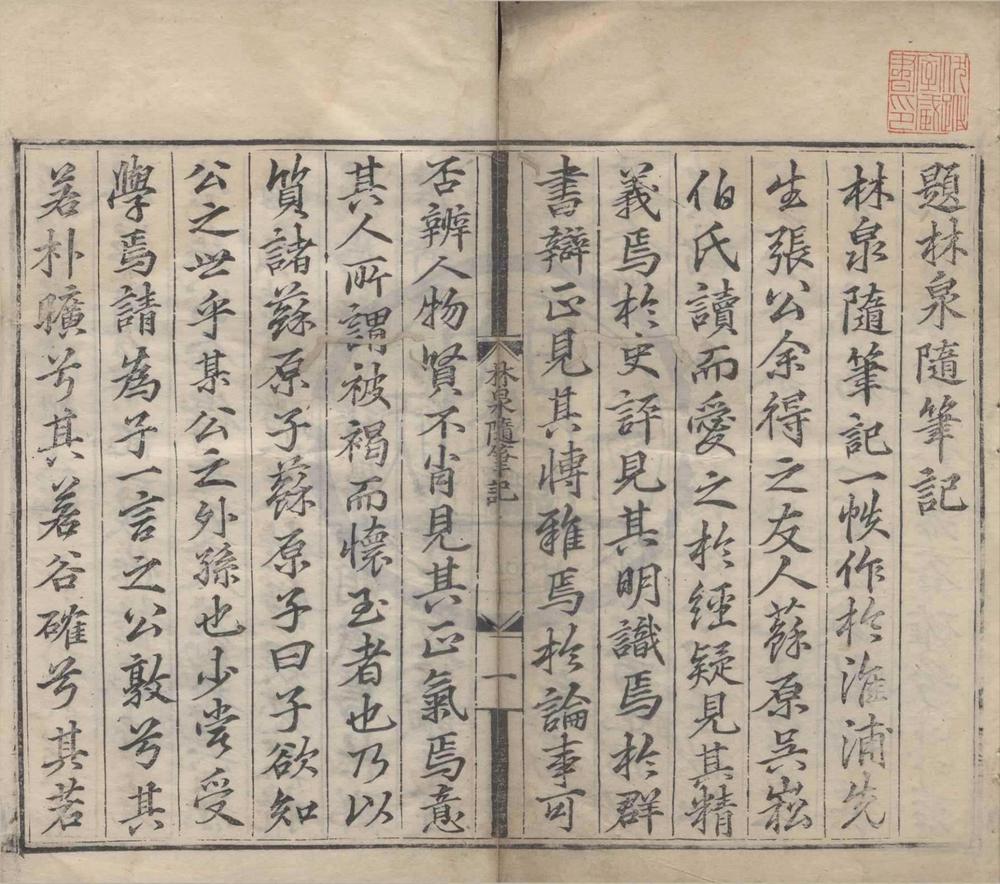 題林泉隨筆記
林泉隨筆記一帙作於淮浦先
生張公余得之友人蘇原吳崧
伯氏讀而愛之於經疑見其精
義焉於史評見其明識焉於群
書辯正見其愽雅焉於論事可
林泉隨筆記
一
否辨人物賢不肖見其正氣焉意
其人所謂被褐而懷玉者也乃以
質諸蘇原子蘇原子曰子欲知
公之世乎某公之外孫也少嘗受
學焉請為子一言之公敦兮其
若朴曠兮其若谷確兮其若